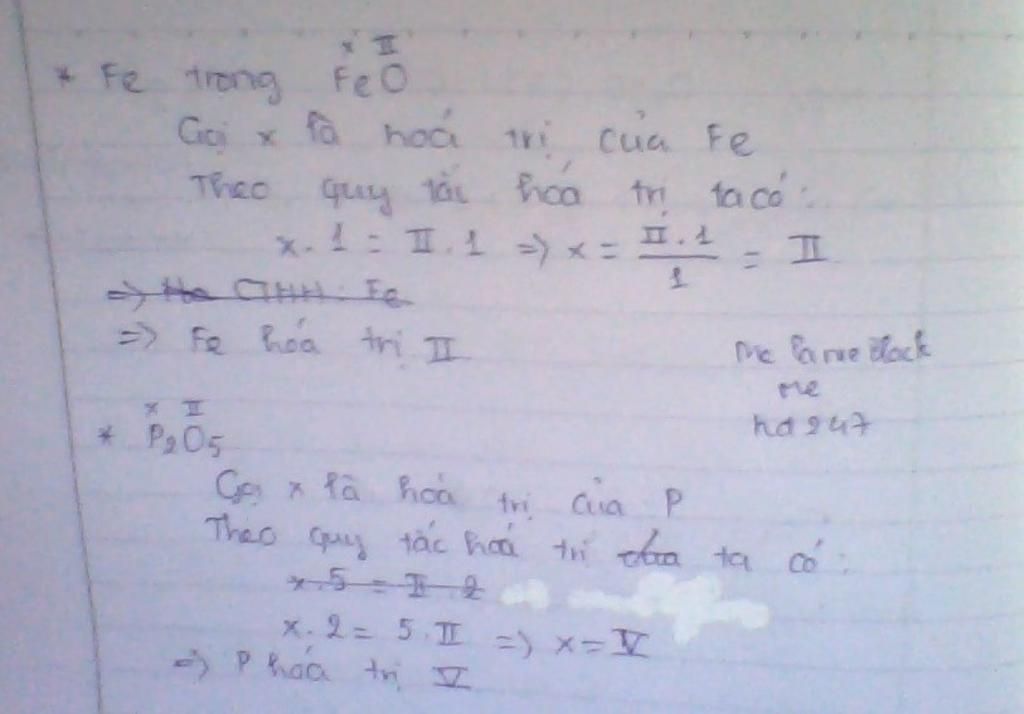 x II
* Fe trong FeO
Gọi x là hoá trị của Fe
Theo quy tắc hóa trị ta có:
x . 1 = II . 1 => x = II . 1 / 1 = II
=> CTHH: Fe
=> Fe hóa trị II
me
hd 247
x II
* P2O5
Gọi x là hoá trị của P
Theo quy tắc hoá trị ta có:
x . 5 = II . 2
x . 2 = 5 . II => x = V
=> P hoá trị V